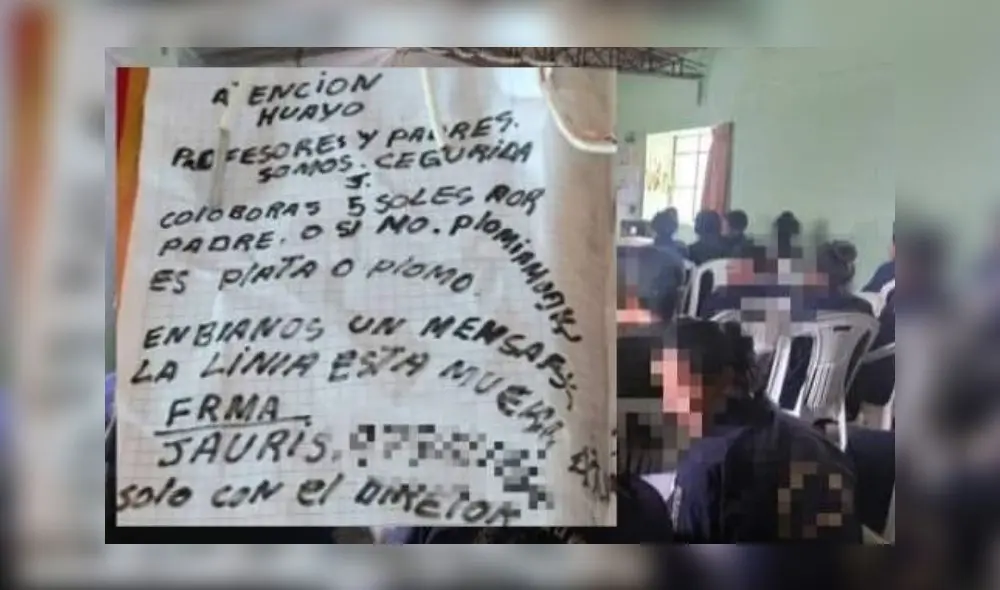 ATENCION
HUAYO
PROFESORES Y PADRES.
SOMOS. CEGURIDA
J.
COLOBORAS 5 SOLES POR
PADRE. O SI NO.
ES PLATA O PLOMO.
ENBIANOS UN MENSAJ
LA LINIA ESTA MUERTA
FRMA
JAURIS.
solo con el DIRETOR